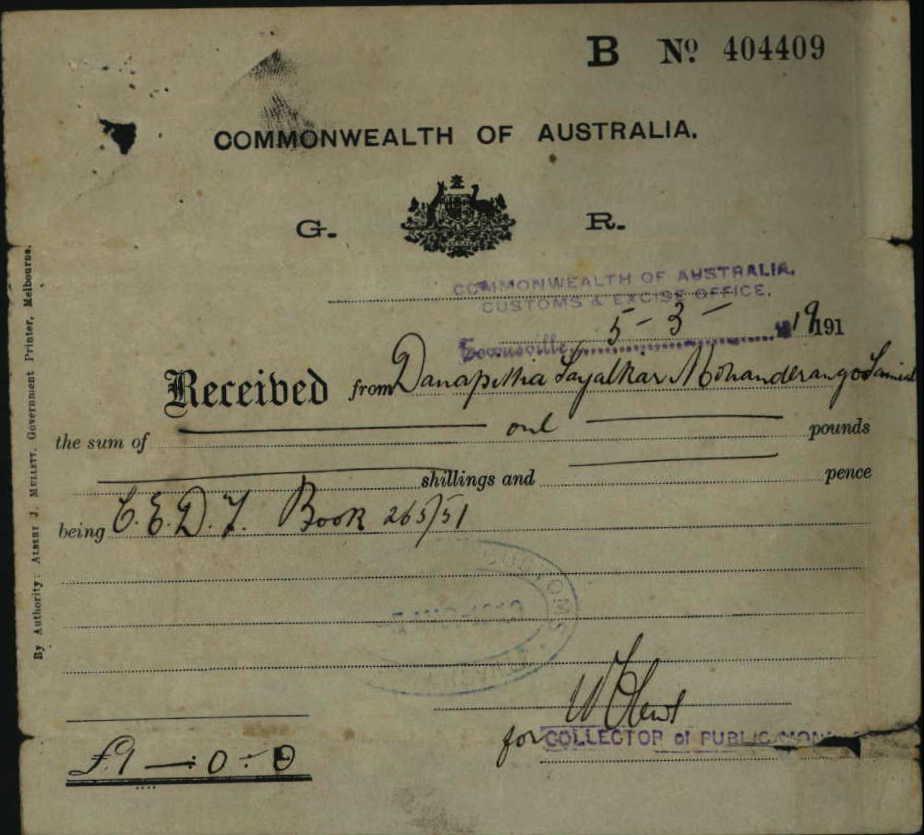 B No. 404409
COMMONWEALTH OF AUSTRALIA.
G. R.
COMMONWEALTH OF AUSTRALIA.
CUSTOMS & EXCISE OFFICE.
Townsville 5-3-19 191
Received from Danapitha
the sum of one pounds
shillings and pence
being C.E.D.T. Book 265/51
for COLLECTOR of PUBLIC
£1 — : 0 : 0
By Authority: ALBERT J. MULLETT, Government Printer, Melbourne.